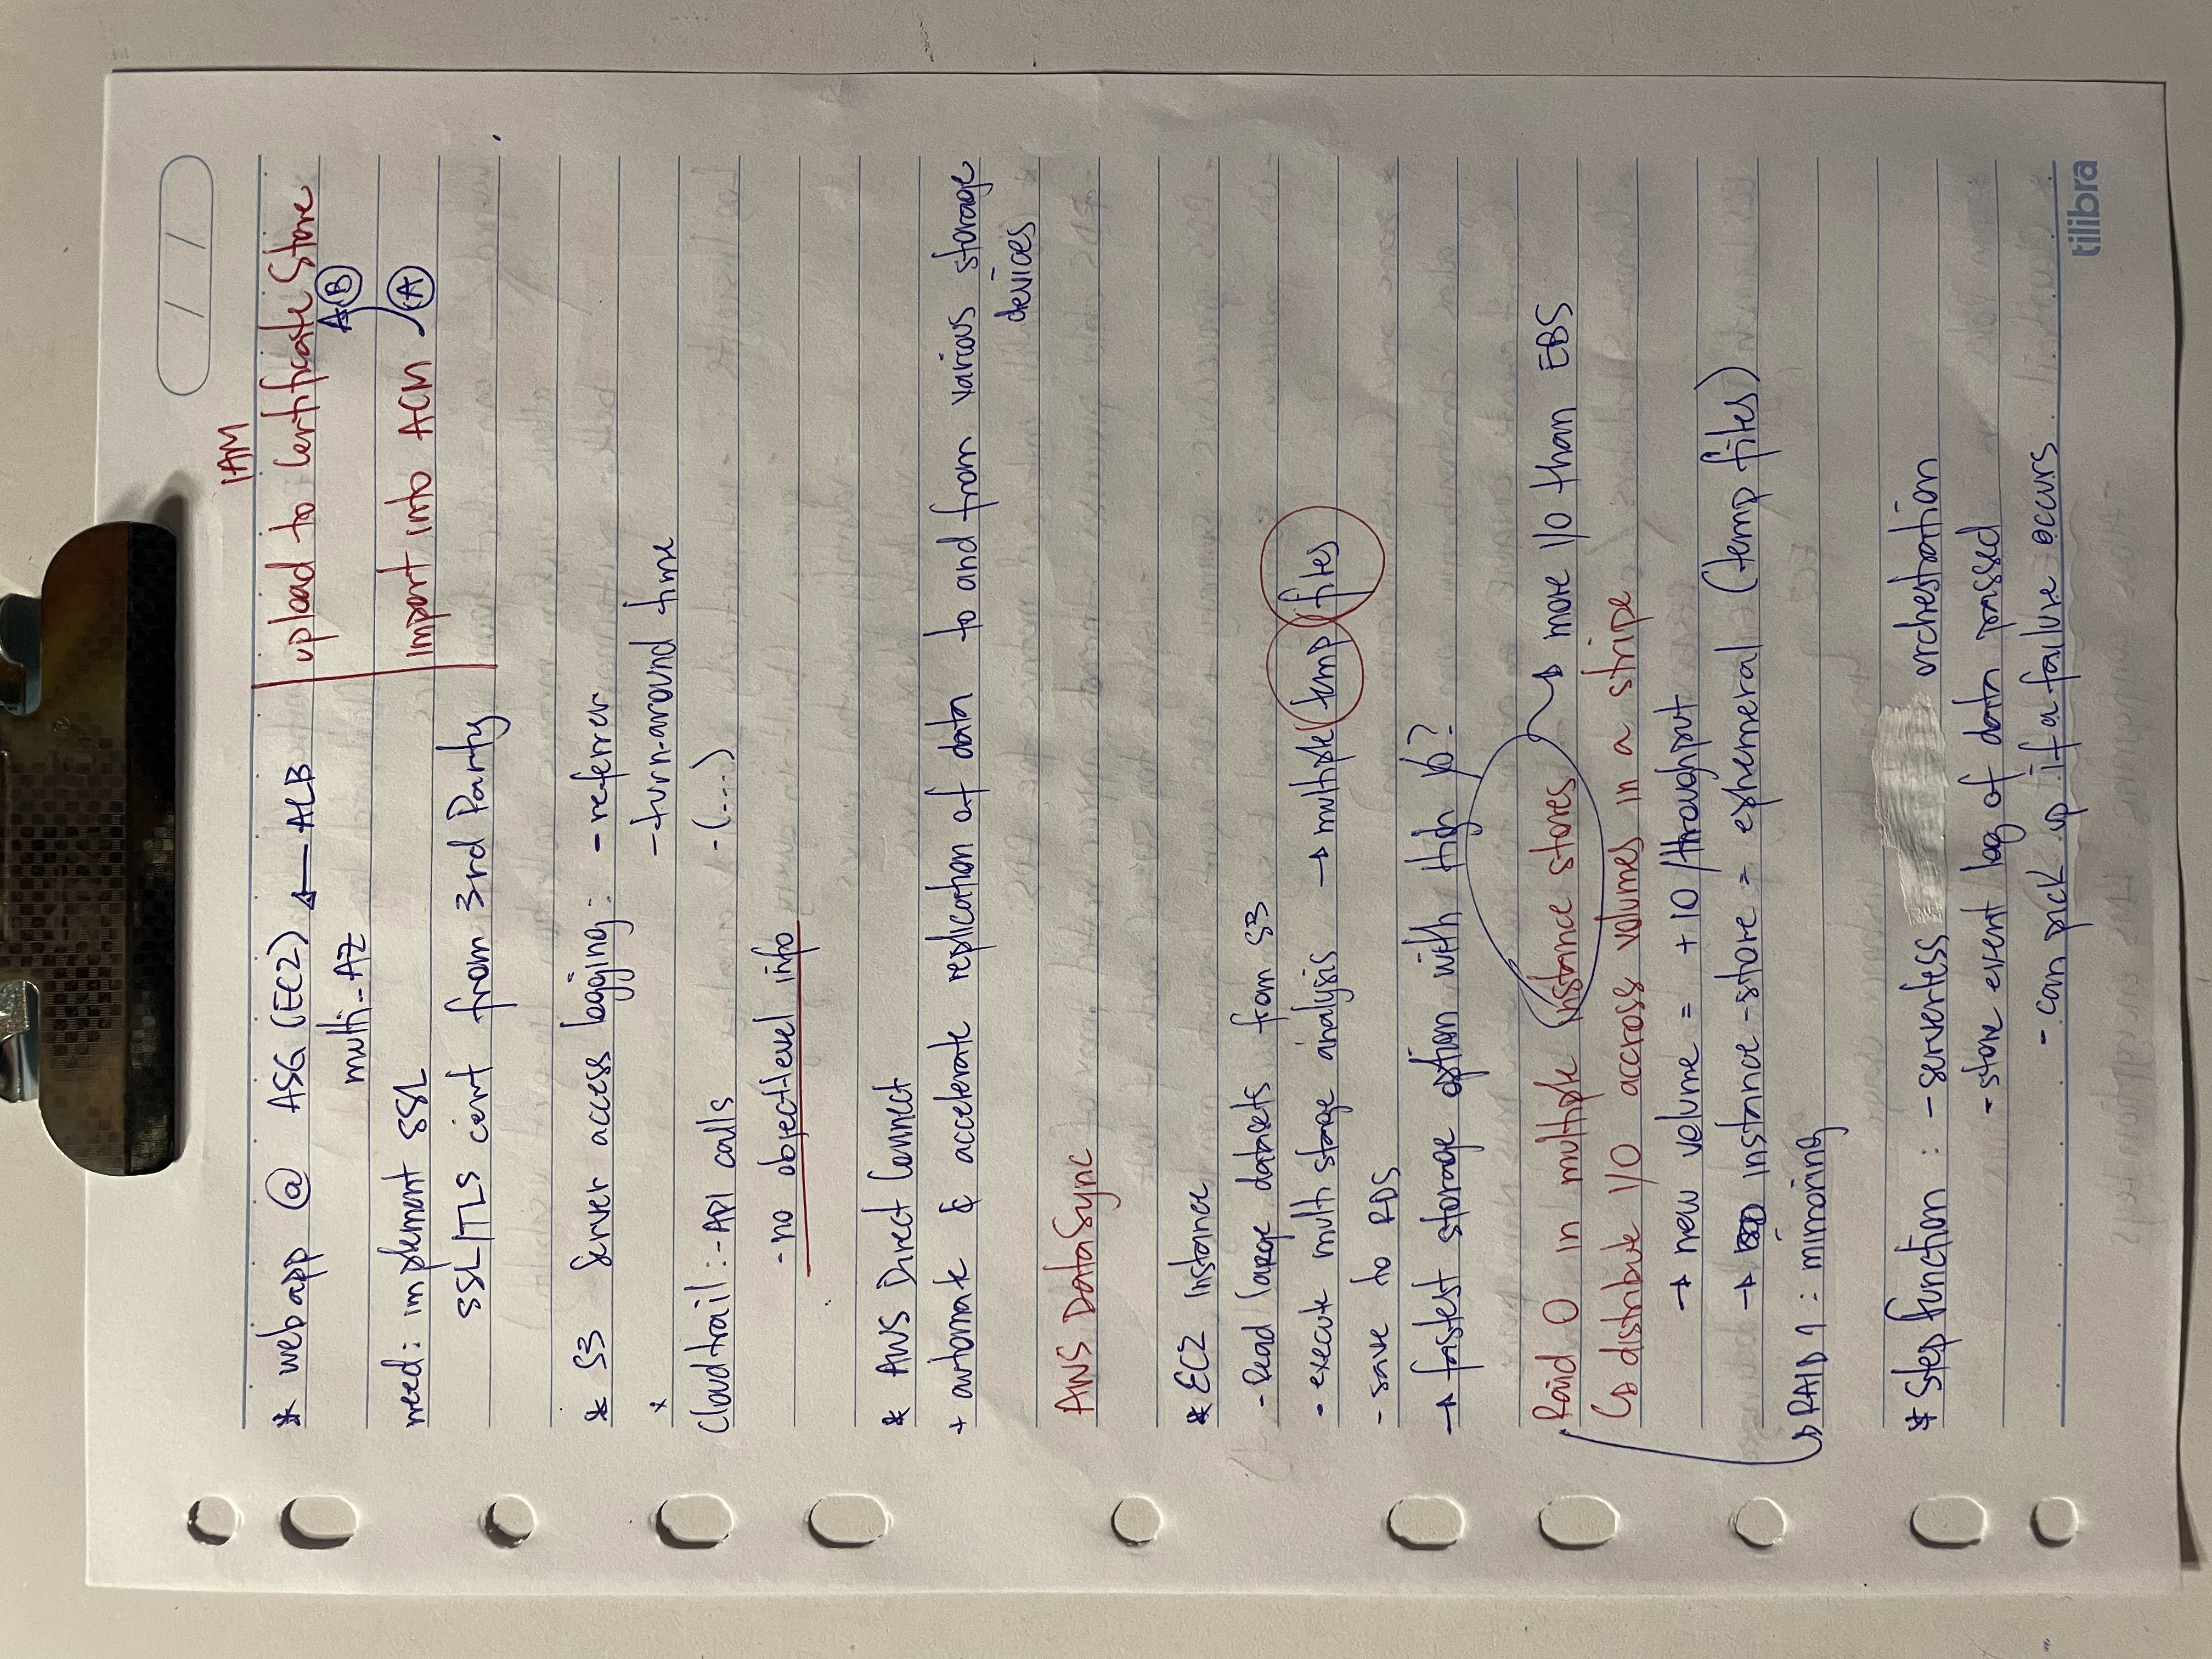 IAM
* webapp @ ASG (EC2) ← ALB
upload to Certificate Store
multi-AZ
A B
need: implement SSL
import into ACM A
SSL/TLS cert from 3rd Party
* S3 Server access logging: - referrer
x
- turn-around time
Cloudtrail: - API calls - (...)
- no object-level info
* AWS Direct Connect
+ automate & accelerate replication of data to and from various storage
devices
AWS DataSync
* EC2 instance
- Read large datasets from S3
- execute multi stage analysis → multiple (temp (files
- save to RDS
→ fastest storage option with high I/O?
Raid 0 in multiple instance stores → more I/O than EBS
↳ distribute I/O accross volumes in a stripe
→ new volume = + IO/throughput
→ instance-store = ephemeral (temp files)
↳ RAID 1: mirroring
* Step function: - serverless orchestration
- store event log of data passed
- can pick up if a failure occurs
tilibra